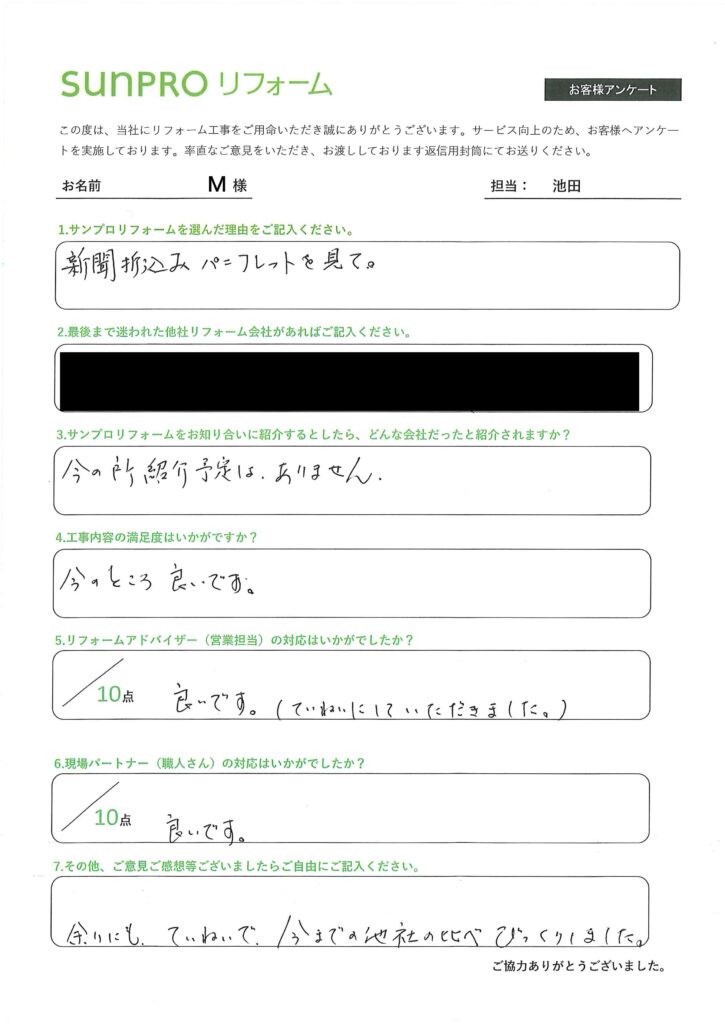 sunPRO リフォーム
お客様アンケート
この度は、当社にリフォーム工事をご用命いただき誠にありがとうございます。サービス向上のため、お客様へアンケー
トを実施しております。率直なご意見をいただき、お渡ししております返信用封筒にてお送りください。
お名前 M 様 担当： 池田
1.サンプロリフォームを選んだ理由をご記入ください。
新聞折込み パンフレットを見て。
2.最後まで迷われた他社リフォーム会社があればご記入ください。
3.サンプロリフォームをお知り合いに紹介するとしたら、どんな会社だったと紹介されますか？
今の所紹介予定は、ありません.
4.工事内容の満足度はいかがですか？
今のところ 良いです。
5.リフォームアドバイザー（営業担当）の対応はいかがでしたか？
/10点 良いです。(ていねいにしていただきました。)
6.現場パートナー（職人さん）の対応はいかがでしたか？
/10点 良いです。
7.その他、ご意見ご感想等ございましたらご自由にご記入ください。
余りにも、ていねいで、今までの他社の比べ びっくりしました。
ご協力ありがとうございました。